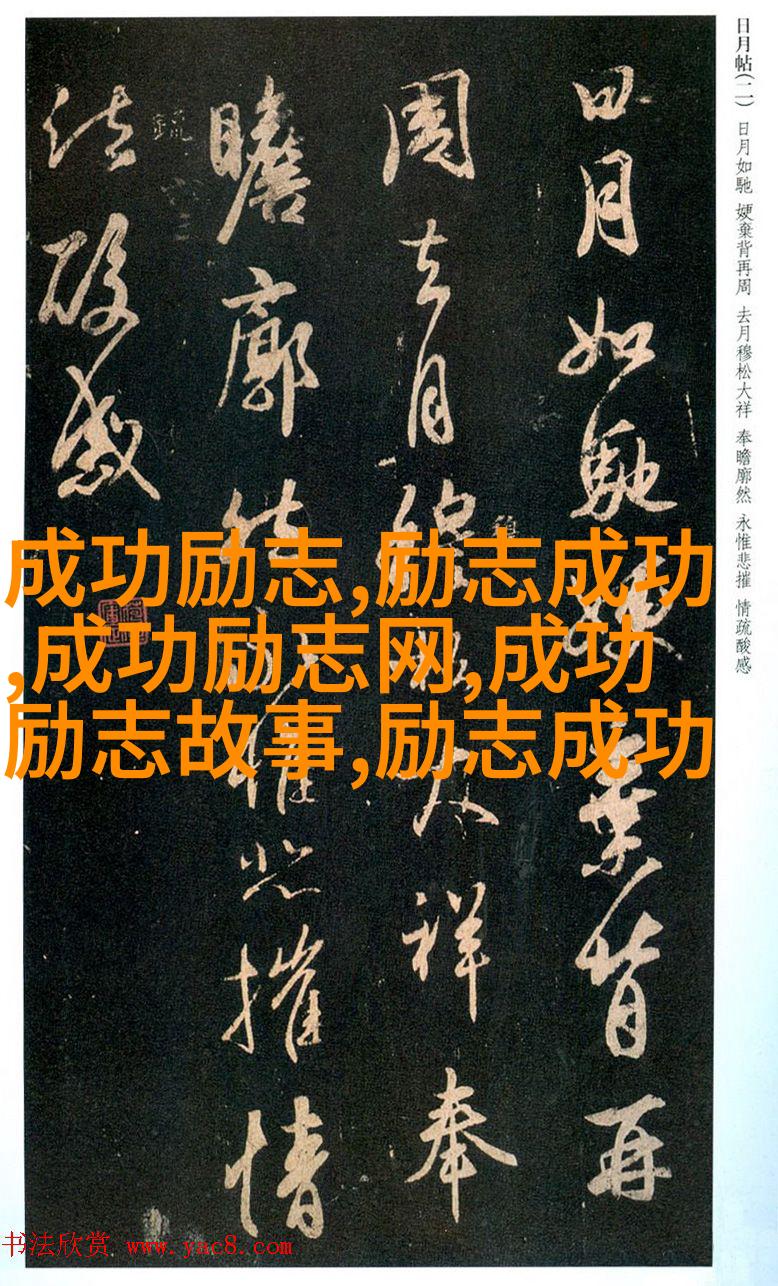 日月帖(二) 日月如馳 㛐棄背再周 去月穆松大祥 奉瞻廓然 永惟悲摧 情疏酸感
日月如馳㛐棄背再
周去月穆松大祥奉
瞻廓然永惟悲摧情
疏酸感
成功励志,励志成功
,成功励志网,成功
励志故事,励志成功
书法欣赏 www.yac8.com